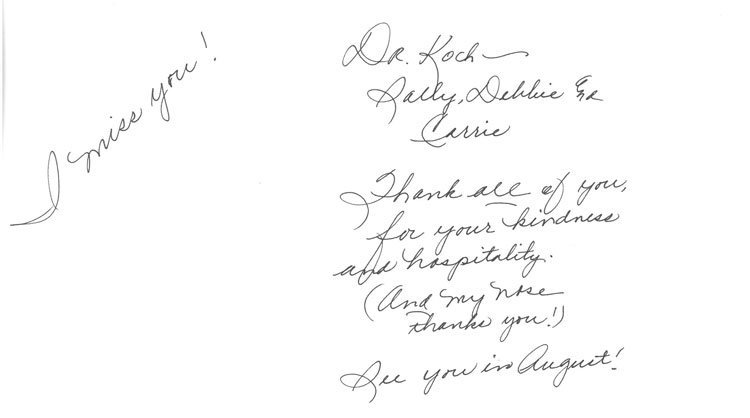 I miss you!
Dr. Koch—
Sally, Debbie &
Carrie
Thank all of you,
for your kindness
and hospitality.
(And my nose
thanks you!)
See you in August!